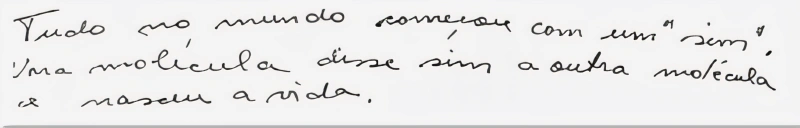 Tudo no mundo começou com um "sim".
Uma molécula disse sim a outra molécula
e nasceu a vida.